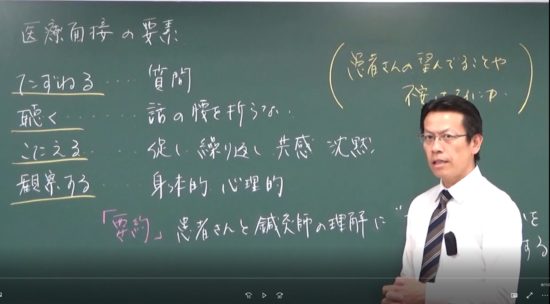 医療面接の要素
たずねる……質問
聴く………話の腰を折らない
こたえる……促し 繰り返し 共感 沈黙
観察する……身体的 心理的
「要約」患者さんと鍼灸師の理解に
する
患者さんの望んでることや